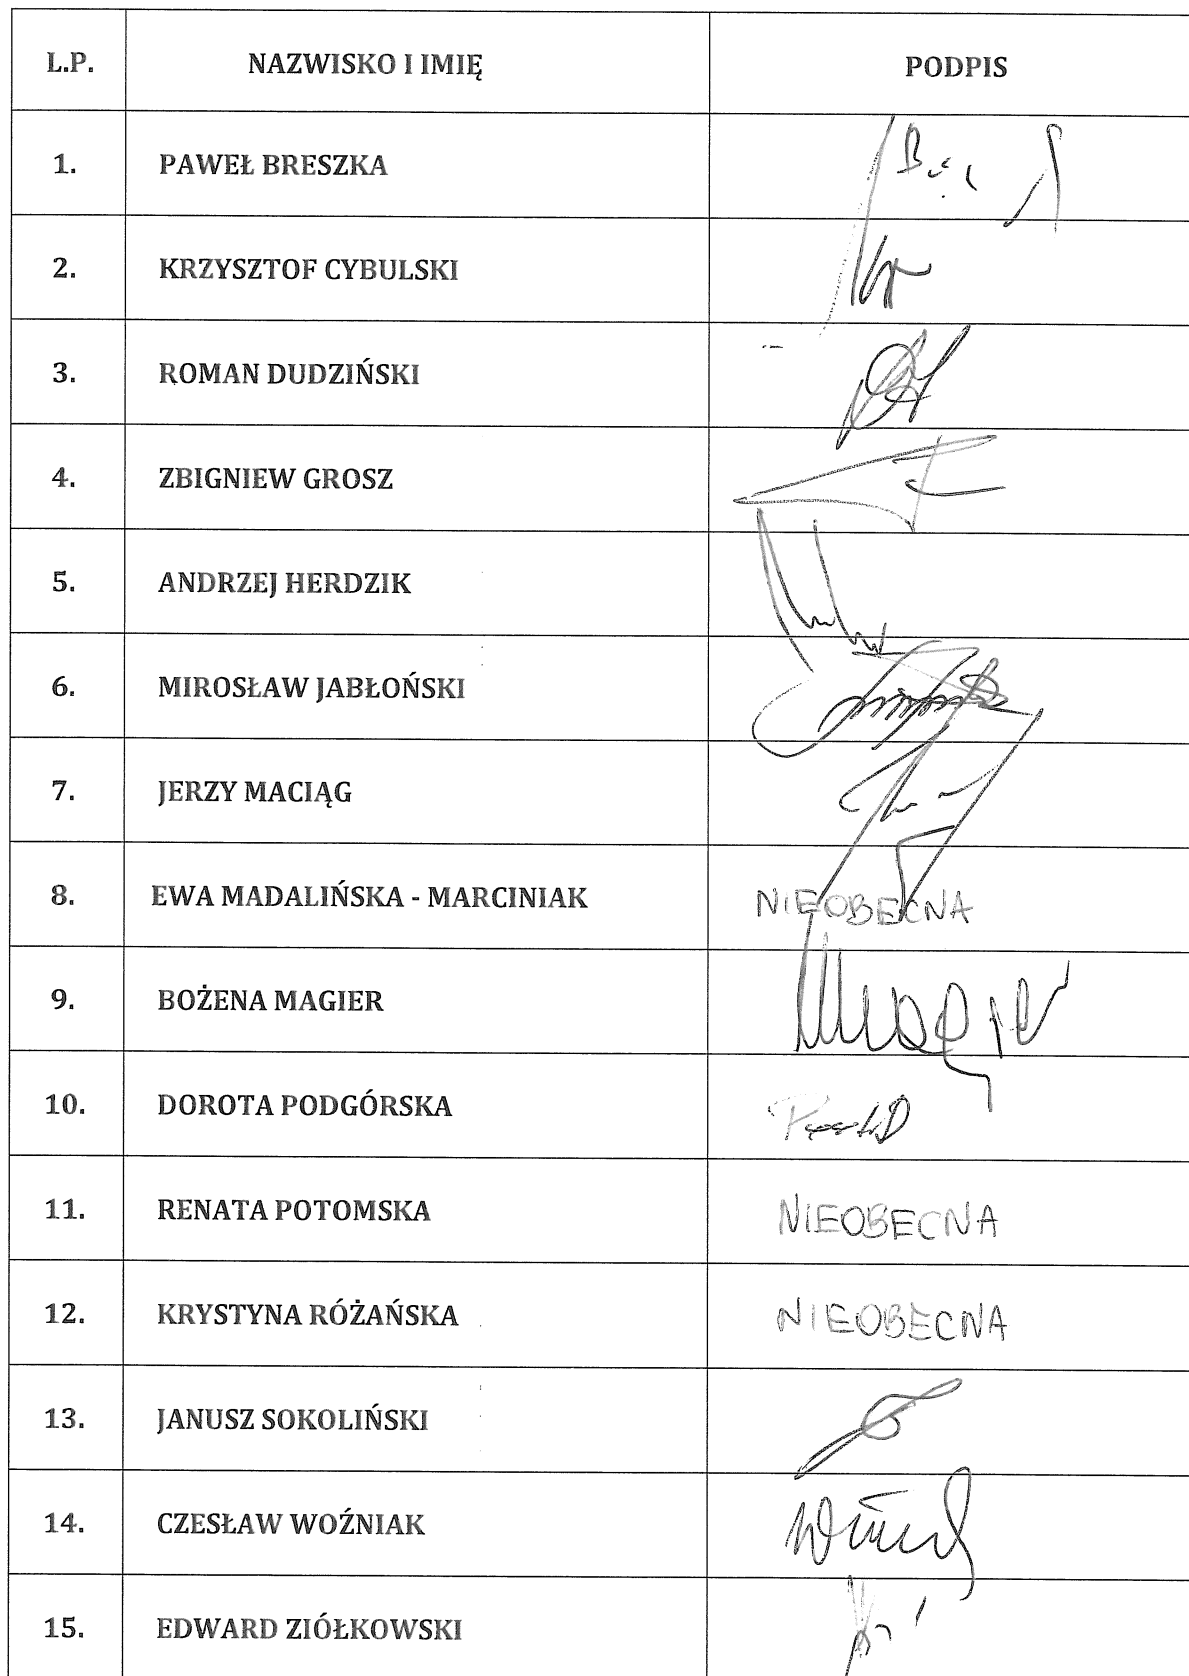 L.P. NAZWISKO I IMIĘ PODPIS
1. PAWEŁ BRESZKA
2. KRZYSZTOF CYBULSKI
3. ROMAN DUDZIŃSKI
4. ZBIGNIEW GROSZ
5. ANDRZEJ HERDZIK
6. MIROSŁAW JABŁOŃSKI
7. JERZY MACIĄG
8. EWA MADALIŃSKA - MARCINIAK NIEOBECNA
9. BOŻENA MAGIER
10. DOROTA PODGÓRSKA
11. RENATA POTOMSKA NIEOBECNA
12. KRYSTYNA RÓŻAŃSKA NIEOBECNA
13. JANUSZ SOKOLIŃSKI
14. CZESŁAW WOŹNIAK
15. EDWARD ZIÓŁKOWSKI